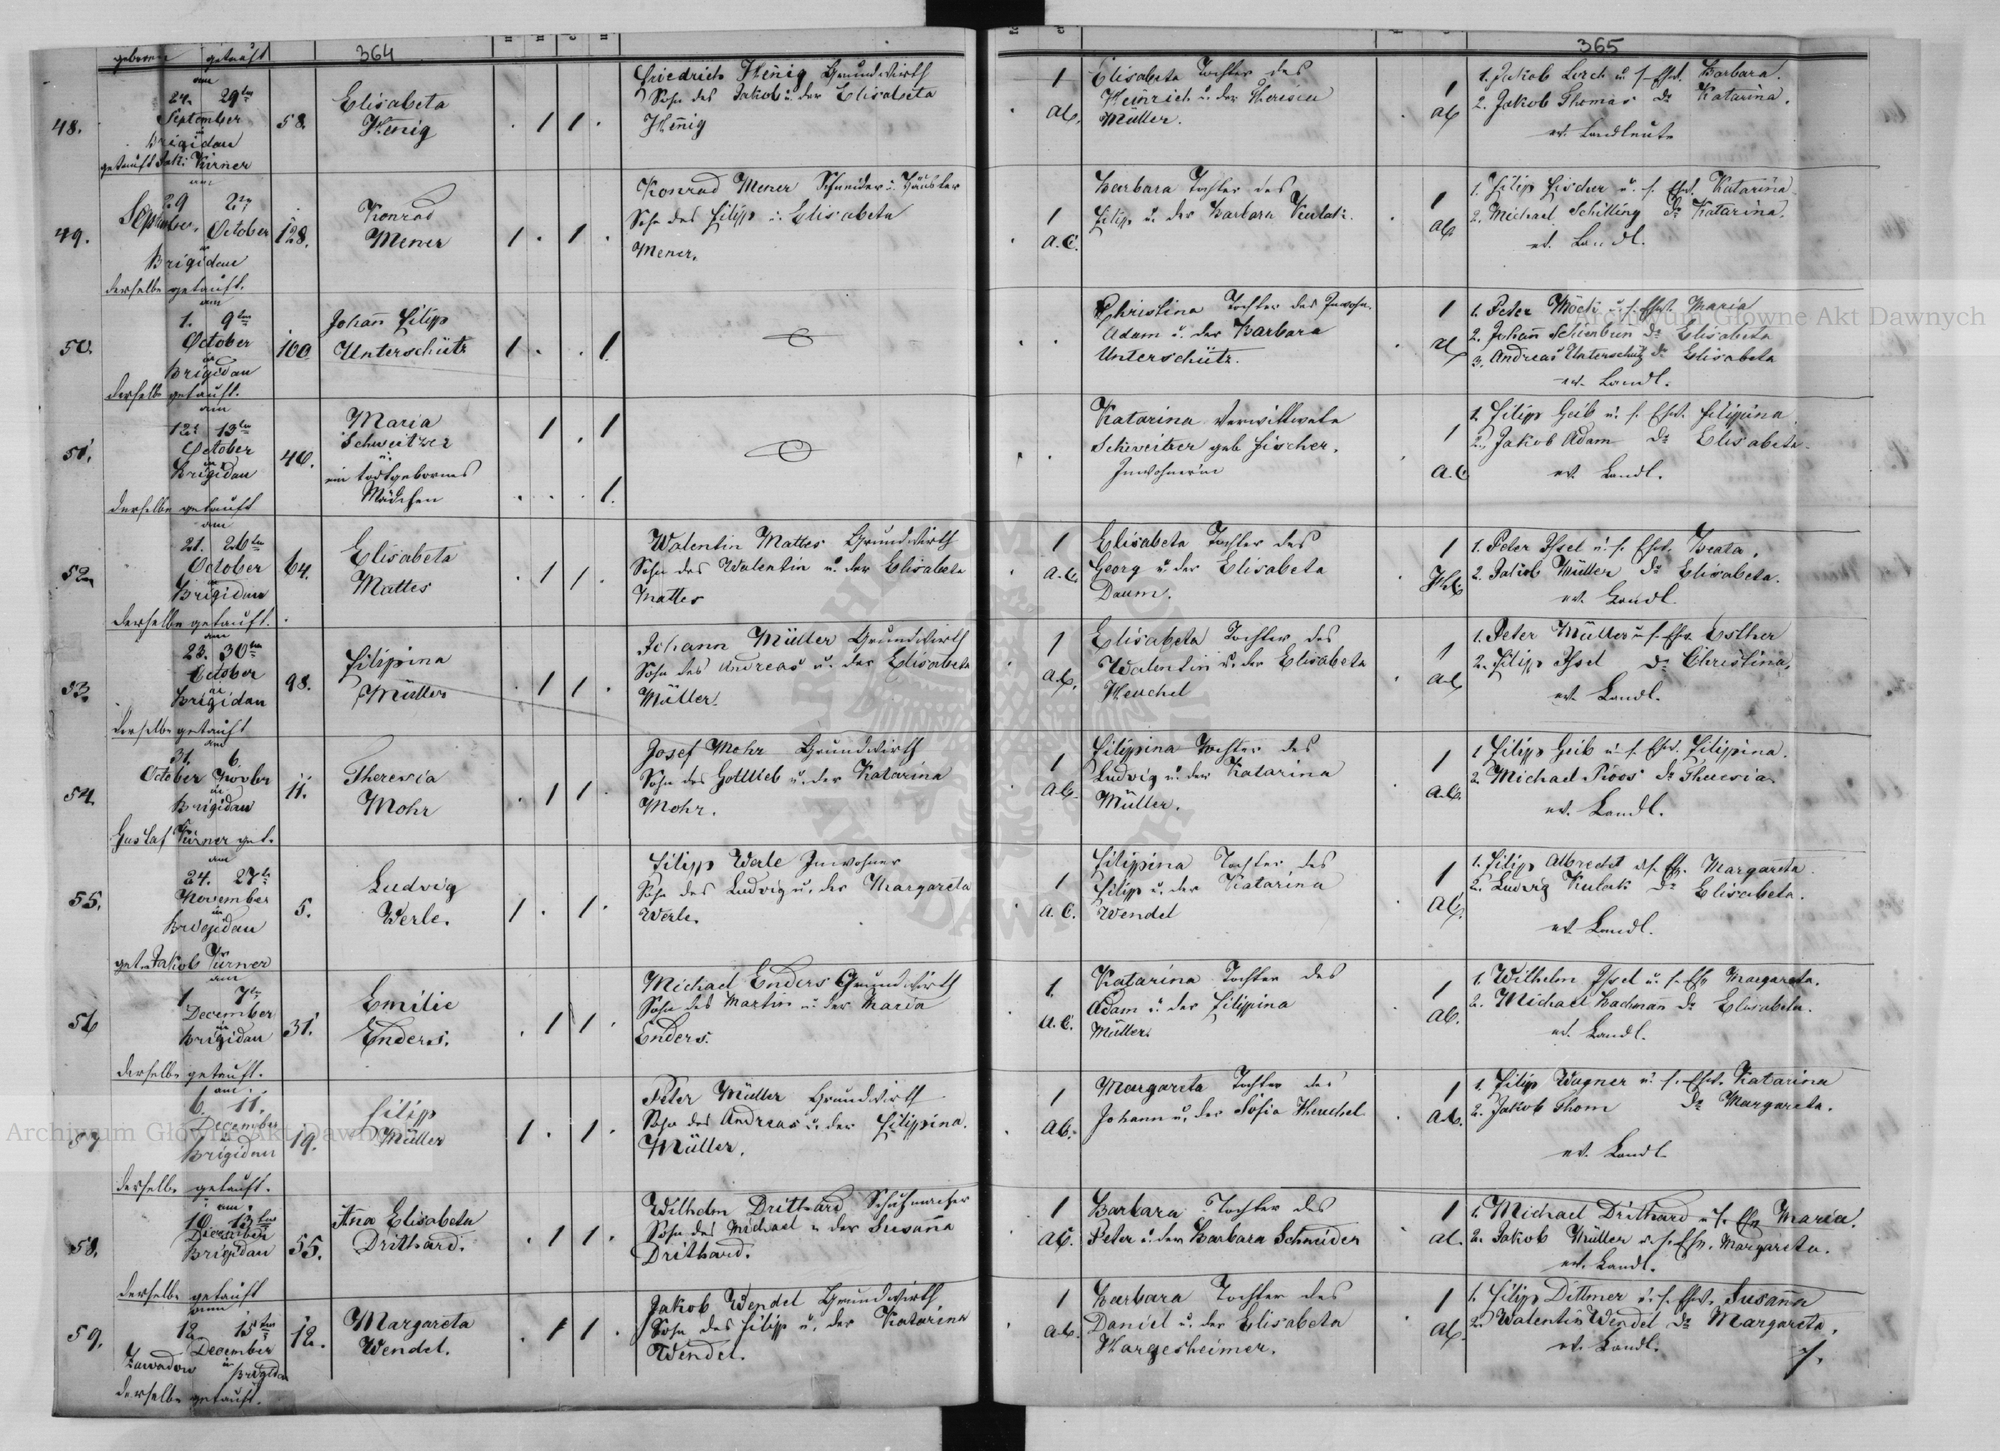 364
365
geboren getauft
am
48. 24. 29ten
September
in
Brigidau
getauft Jak: Kirner
58.
Elisabeta
Henig
Friedrich Henig Grundwirth
Sohn des Jakob u. der Elisabeta
Henig
1
Elisabeta Tochter des
Heinrich u. der Theresia
Müller.
1
1. Jakob Lerch u. s. Ehrt. Barbara.
2. Jakob Thomas do Katarina.
ev. Landleute
am
49. 29 2ten
September. October
in
Brigidau
derselbe getauft.
128.
Konrad
Mener
Konrad Mener Schneider u. Häusler
Sohn des Filipp u. Elisabeta
Mener.
1
A.C.
Barbara Tochter des
Filipp u. der Barbara Kulak.
1
1. Filip Fischer u. s. Ehrt. Katarina
2. Michael Schilling do Katarina.
ev. Landl.
am
50. 1. 9ten
October
in
Brigidau
derselbe getauft.
100
Johann Filipp
Unterschütz
Christina Tochter des Inwohn.
Adam u. der Barbara
Unterschütz.
1
1. Peter Möck u. s. Ehrt. Maria
2. Johann do Elisabeta
3. Andreas Unterschütz do Elisabeta
ev. Landl.
am
51. 12. 13ten
October
in
Brigidau
derselbe getauft
40.
Maria
Schweitzer
u.
ein todtgebornes
Mädchen
Katarina verwittwete
Schweitzer geb Fischer.
Inwohnerin
1
A.C
1. Filipp Geib u. s. Ehrt. Filippina
2. Jakob Adam do Elisabeta.
ev. Landl.
am
52. 21. 26ten
October
in
Brigidau
derselbe getauft.
64.
Elisabeta
Mattes
Walentin Mattes Grundwirth
Sohn des Walentin u. der Elisabeta
Mattes
1
A.C.
Elisabeta Tochter des
Georg u. der Elisabeta
Daum.
1
H.C.
1. Peter Issel u. s. Ehrt. Beata.
2. Jakob Müller do Elisabeta.
ev. Landl.
am
53. 23. 30ten
October
in
Brigidau
derselbe getauft
98.
Filippina
Müller
Johann Müller Grundwirth
Sohn des Andreas u. der Elisabeta
Müller.
1
A.C.
Elisabeta Tochter des
Walentin u. der Elisabeta
Heuchel
1
A.C
1. Peter Müller u. s. Ehr. Esther
2. Filipp Issel do Christina.
ev. Landl.
am
54. 31. 6.
October Novber
in
Brigidau
Gustaf Kirner get.
11.
Theresia
Mohr
Josef Mohr Grundwirth
Sohn des Gottlieb u. der Katarina
Mohr.
1
A.C.
Filippina Tochter des
Ludwig u. der Katarina
Müller.
1
A.C.
1. Filipp Geib u. s. Ehrt. Filippina.
2. Michael Roos do Theresia.
ev. Landl.
am
55. 24. 27t
November
in
Brigidau
get. Jakob Kirner
5.
Ludwig
Werle.
Filipp Werle Inwohner
Sohn des Ludwig u. der Margareta
Werle.
1
A.C.
Filippina Tochter des
Filipp u. der Katarina
Wendel
1
A.C.
1. Filipp Albrecht u. s. Eh. Margareta.
2. Ludwig Kulak do Elisabeta.
ev. Landl.
am
56 1. 7ten
December
in
Brigidau
derselbe getauft.
31.
Emilie
Enders.
Michael Enders Grundwirth
Sohn des Martin u. der Maria
Enders.
1.
A.C.
Katarina Tochter des
Adam u. der Filippina
Müller.
1
A.C.
1. Wilhelm Issel u. s. Ehr Margareta.
2. Michael Bachman do Elisabeta.
ev. Landl.
am
57 6. 11.
December
in
Brigidau
derselbe getauft.
19.
Filipp
Müller
Peter Müller Grundwirth
Sohn des Andreas u. der Filippina.
Müller.
1
A.C.
Margareta Tochter des
Johann u. der Sofia Heuchel
1
A.C.
1. Filip Wagner u. s. Ehrt. Katarina
2. Jakob Thom do Margareta.
ev. Landl.
am
58. 10. 13ten
December
Brigidau
derselbe getauft
55.
Ana Elisabeta
Drithard.
Wilhelm Drithard Schuhmacher
Sohn des Michael u der Susana
Drithard.
1
A.C.
Barbara Tochter des
Peter u. der Barbara Schneider
1
1. Michael Drithard u. s. Ehr Maria.
2. Jakob Müller u. s. Ehr. Margareta.
ev. Landl.
am
59. 12. 15ten
December
Zawadow in Brigidau
derselbe getauft.
12.
Margareta
Wendel.
Jakob Wendel Grundwirth
Sohn des Filipp u. der Katarina
Wendel.
1
A.C.
Barbara Tochter des
Daniel u. der Elisabeta
Hargesheimer.
1
1. Filipp Dittmer u. s. Ehrt. Susana
2. Walentin Wendel do Margareta.
ev. Landl.
Archiwum Główne Akt Dawnych
Archiwum Główne Akt Dawnych